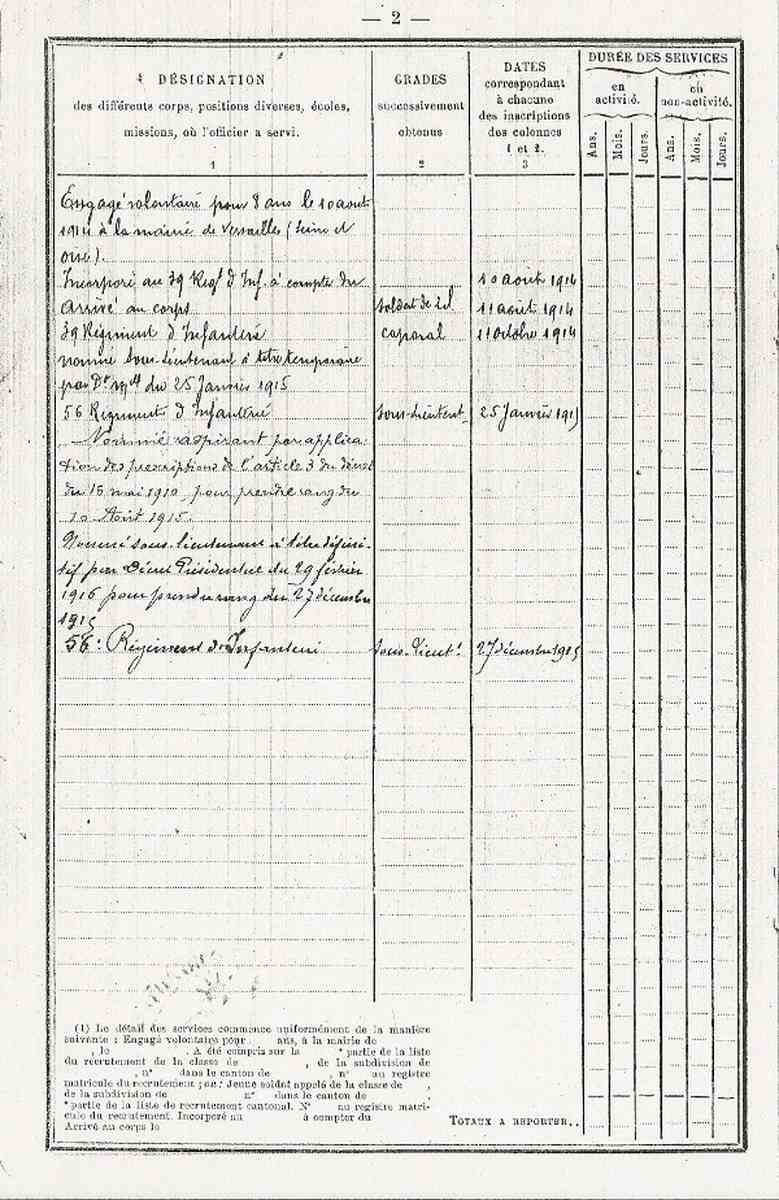 — 2 —
DÉSIGNATION
des différents corps, positions diverses, écoles,
missions, où l'officier a servi.
1
GRADES
successivement
obtenus
2
DATES
correspondant
à chacune
des inscriptions
des colonnes
1 et 2.
3
DURÉE DES SERVICES
en
activité.
en
non-activité.
Ans.
Mois.
Jours.
Ans.
Mois.
Jours.
Engagé volontaire pour 8 ans le 10 août
1914 à la mairie de Versailles (Seine et
oise).
Incorporé au 39 Regt d'Inf. à compter du 10 août 1914
Arrivé au corps soldat de 2d 11 août 1914
39 Régiment d'Infanterie caporal 11 octobre 1914
nommé sous-lieutenant à titre temporaire
par Don mlle du 25 Janvier 1915
56 Regiment d'Infanterie sous-lieutent 25 Janvier 1915
Nommé aspirant par applica-
tion des prescriptions de l'article 3 du décret
du 15 mai 1910 pour prendre rang du
10 Août 1915.
Nommé sous-lieutenant à titre défini-
tif par Décret Présidentiel du 29 février
1916 pour prendre rang du 27 décembre
1915
56e Régiment d'Infanterie sous-lieutt 27 décembre 1915
(1) Le détail des services commence uniformément de la manière
suivante : Engagé volontaire pour ans, à la mairie de
, le . A été compris sur la e partie de la liste
du recrutement de la classe de , de la subdivision de
, n° dans le canton de , n° au registre
matricule du recrutement ; ou : Jeune soldat appelé de la classe de ,
de la subdivision de n° dans le canton de ,
e partie de la liste de recrutement cantonal. N° au registre matri-
cule du recrutement. Incorporé au à compter du
Arrivé au corps le
TOTAUX A REPORTER..